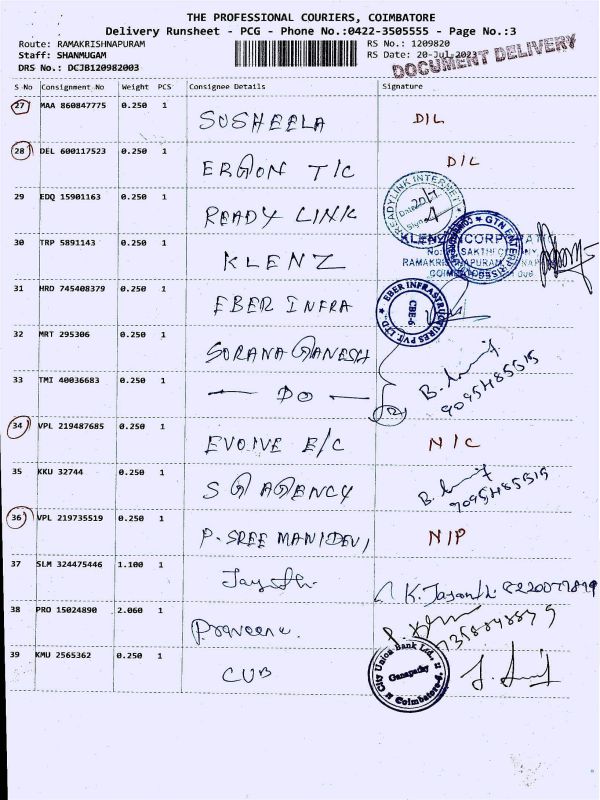 THE PROFESSIONAL COURIERS, COIMBATORE
Delivery Runsheet - PCG - Phone No.:0422-3505555 - Page No.:3
Route: RAMAKRISHNAPURAM RS No.: 1209820
Staff: SHANMUGAM RS Date: 20-Jul-2023
DRS No.: DCJB120982003
DOCUMENT DELIVERY
S No Consignment No Weight PCS Consignee Details Signature
27 MAA 860847775 0.250 1 SUSHEELA D/L
28 DEL 600117523 0.250 1 ERGON T/C D/L
29 EDQ 15901163 0.250 1 READY LINK
READYLINK INTERNET
Date
Sign
30 TRP 5891143 0.250 1 KLENZ
GTN ENTERPRISES
31 HRD 745408379 0.250 1 EBER INFRA
EBER INFRASTRUCTURES PVT. LTD.
CBE-6
32 MRT 295306 0.250 1 SORANA GANESH
33 TMI 40036683 0.250 1 — DO — (2)
34 VPL 219487685 0.250 1 EVOIVE E/C N/C
35 KKU 32744 0.250 1 S G AGENCY
36 VPL 219735519 0.250 1 P. SREE MANIDEVI N/P
37 SLM 324475446 1.100 1 K. Jayanthi
38 PRO 15024890 2.060 1 Praveena
39 KMU 2565362 0.250 1 CUB
City Union Bank Ltd.,
Ganapathy
Coimbatore